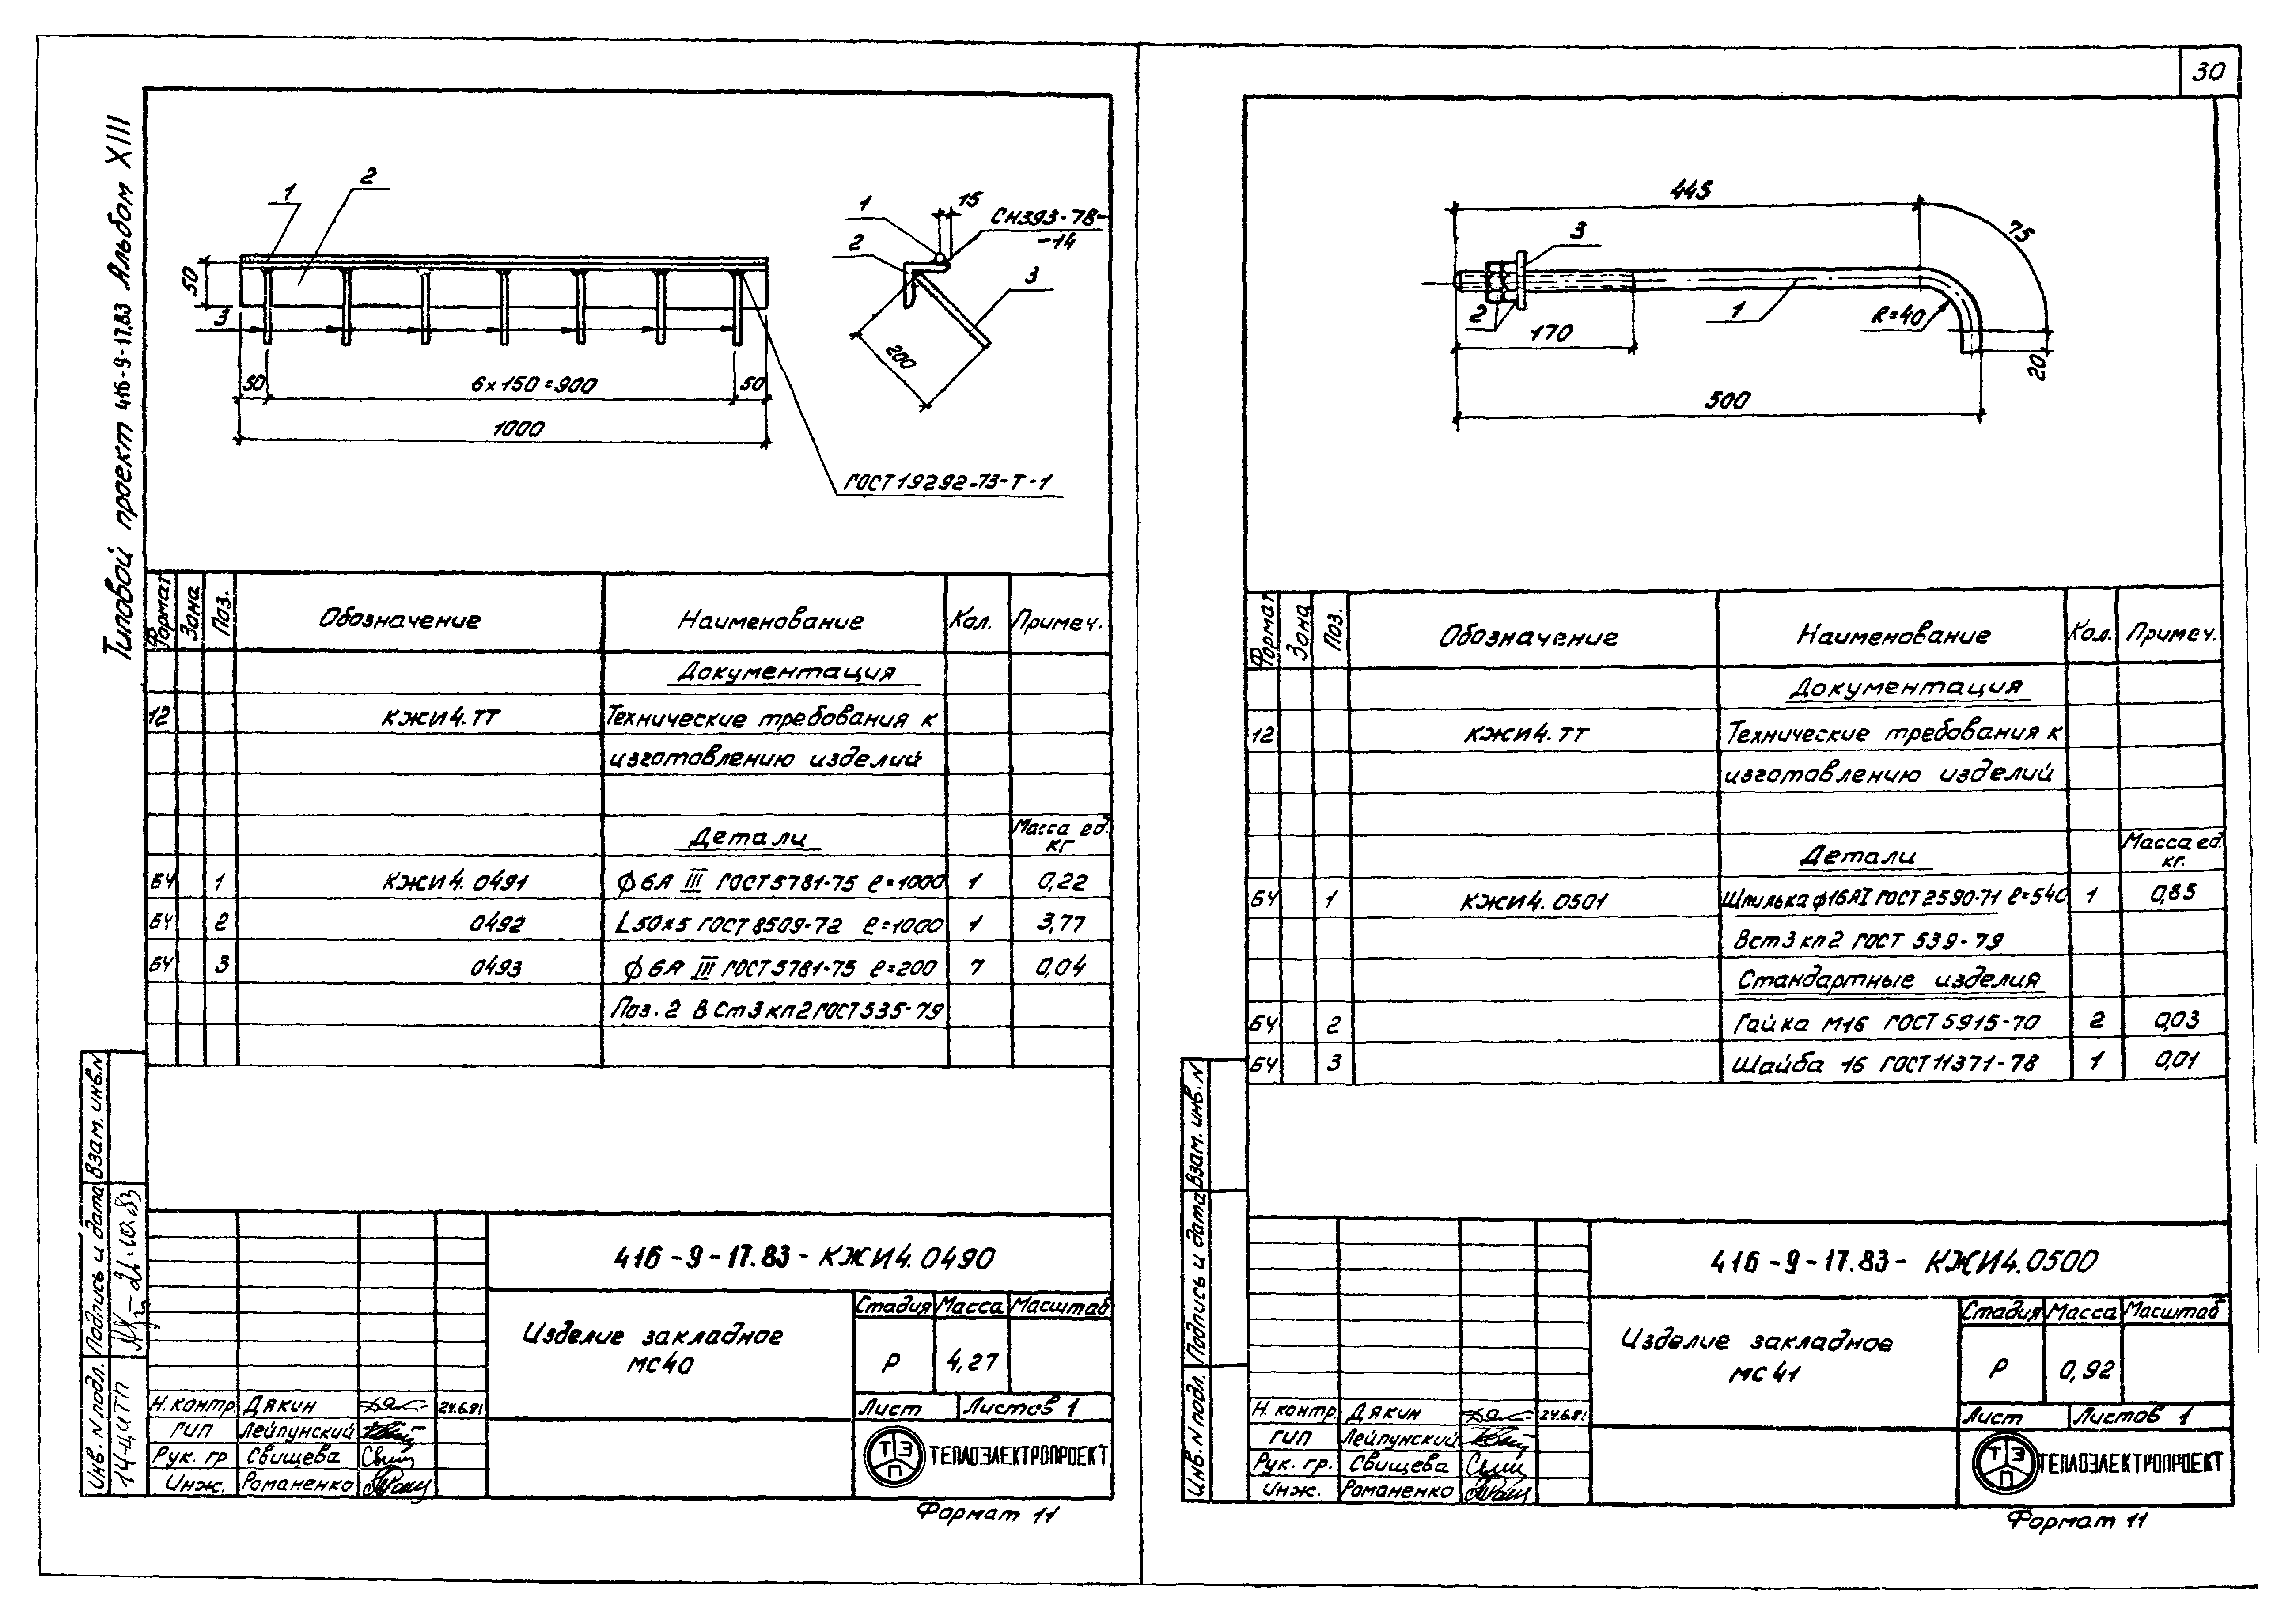 30
Типовой проект 416-9-17.83 Альбом XIII
1
2
50
3
50
6×150=900
50
1000
1
15
СН393-78-
-14
2
3
200
ГОСТ19292-73-Т-1
Формат
Зона
Поз.
Обозначение
Наименование
Кол.
Примеч.
Документация
12 КЖИ4.ТТ Технические требования к
изготовлению изделий
Детали Масса ед. кг
БЧ 1 КЖИ4.0491 ϕ6АIII ГОСТ5781-75 ℓ=1000 1 0,22
БЧ 2 0492 L50×5 ГОСТ8509-72 ℓ=1000 1 3,77
БЧ 3 0493 ϕ6АIII ГОСТ5781-75 ℓ=200 7 0,04
Поз.2 ВСт3кп2ГОСТ535-79
Взам. инв.N
Подпись и дата
Инв. N подл.
14-ЦИТП
416-9-17.83-КЖИ4.0490
Изделие закладное
МС40
Стадия Масса Масштаб
Р 4,27
Лист Листов 1
Н.контр. Дякин 24.6.81
ГИП Лейпунский
Рук. гр Свищева
Инж. Романенко
ТЭП
ТЕПЛОЭЛЕКТРОПРОЕКТ
Формат 11
445
75
3
2
1
170
R=40
20
500
Формат
Зона
Поз.
Обозначение
Наименование
Кол.
Примеч.
Документация
12 КЖИ4.ТТ Технические требования к
изготовлению изделий
Детали Масса ед. кг.
БЧ 1 КЖИ4.0501 Шпилька ϕ16АI ГОСТ2590-71 ℓ=540 1 0,85
Вст3кп2 ГОСТ 539-79
Стандартные изделия
БЧ 2 Гайка М16 ГОСТ5915-70 2 0,03
БЧ 3 Шайба 16 ГОСТ11371-78 1 0,01
Взам. инв. N
Подпись и дата
Инв. N подл.
416-9-17.83-КЖИ4.0500
Изделие закладное
МС41
Стадия Масса Масштаб
Р 0,92
Лист Листов 1
Н. контр. Дякин 24.6.81
ГИП Лейпунский
Рук. гр. Свищева
Инж. Романенко
ТЭП
ТЕПЛОЭЛЕКТРОПРОЕКТ
Формат 11